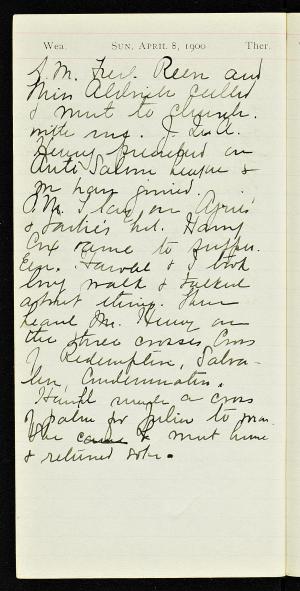 Wea. SUN, APRIL 8, 1900 Ther.
A.M. Fred. Reen and
Miss Aldrich called
& went to church
with me. J. Q. A.
Henry preached on
Anti Saloon League &
in han joined.
P.M. I lay on April
& hit. Harry
Cox came to supper.
Eve. Harold & I took
long walk & talked
about things. Then
heard Mr. Henry on
the three crosses, Cross
of Redemption, Salva-
tion, Condemnation.
Harold made a cross
of palm for to
& went home
& retired .